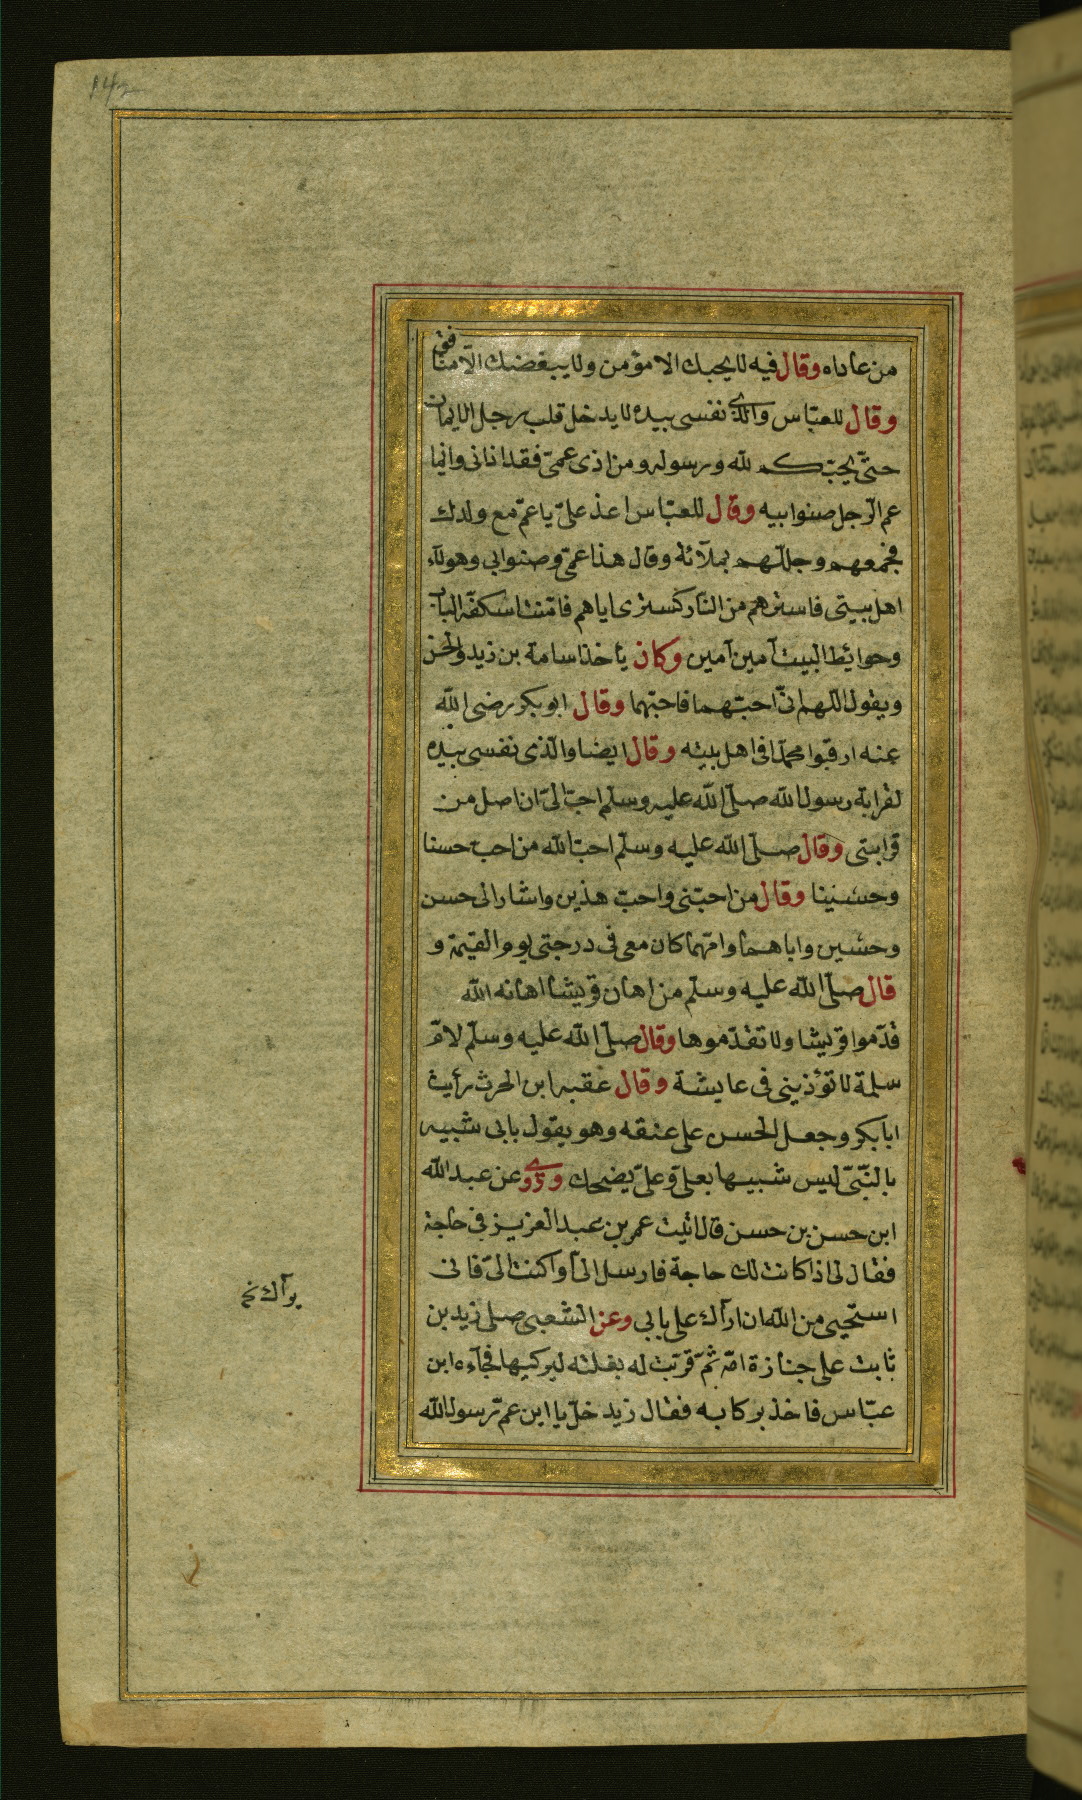 من عاداه وقال فيه لا يحبك الا مؤمن ولا يبغضك الّا منافق
وقال للعبّاس والذي نفسي بيده لا يدخل قلب رجل الايمان
حتّى يحبّكم لله ورسوله ومن اذى عمّى فقد اذانى وانما
عم الرّجل صنو ابيه وقال للعبّاس اغد علىّ يا عمّ مع ولدك
فجمعهم وجلّلهم بملآئة وقال هذا عمّى وصنو ابى وهولآء
اهل بيتى فاسترهم من النار كسترى اياهم فامّنت اسكفّة الباب
وحوايط البيت آمين آمين وكان يأخذ اسامة بن زيد والحسن
ويقول اللهم انّى احبّهما فاحبّهما وقال ابو بكر رضى الله
عنه ارقبوا محمّدا فى اهل بيته وقال ايضا والّذى نفسى بيده
لقرابة رسول الله صلى الله عليه وسلم احبّ الىّ ان اصل من
قرابتى وقال صلى الله عليه وسلّم احبّ الله من احب حسنا
وحسينا وقال من احبّنى واحبّ هذين واشار الى حسن
وحسين واباهما وامّهما كان معى فى درجتى يوم القيمة و
قال صلى الله عليه وسلّم من اهان قريشا اهانه الله
قدّموا قريشا ولا تقدّموها وقال صلى الله عليه وسلّم لامّ
سلمة لا تؤذينى فى عايشة وقال عقبه ابن الحرث رأيت
ابا بكر وجعل الحسن على عنقه وهو يقول بابى شبيه
بالنّبىّ ليس شبيها بعلىّ وعلىّ يضحك وروى عن عبد الله
ابن حسن بن حسن قال اتيت عمر بن عبد العزيز فى حاجة
فقال لى اذا كانت لك حاجة فارسل الىّ او اكتب الىّ فانى
استحيى من الله ان اراك على بابى وعن الشعبى صلى زيد بن
ثابت على جنازة امّه ثمّ قرّبت له بغلته ليركبها فجآءه ابن
عبّاس فاخذ بركابه فقال زيد خلّ يا ابن عمّ رسول الله
يراك نخ